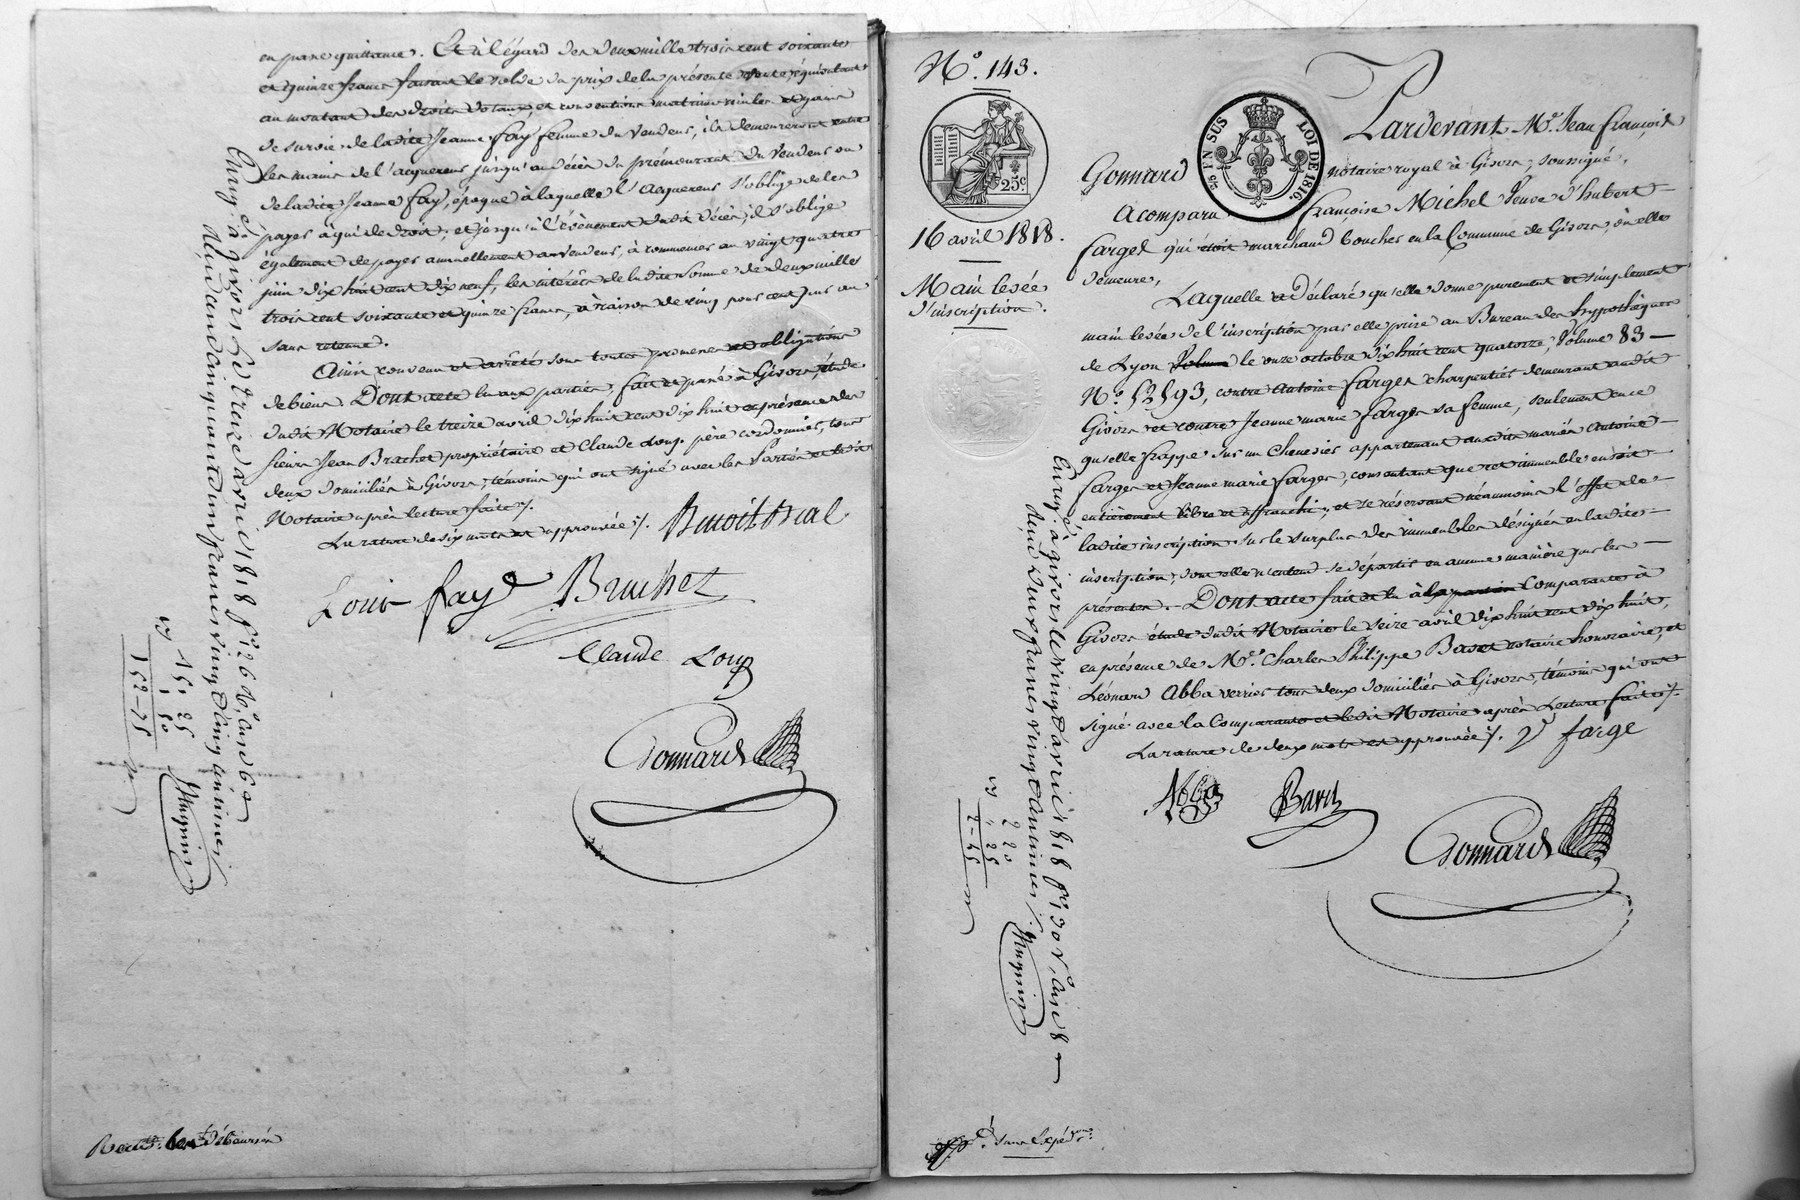 en passe quittance. Et à l'égard des deux mille trois cent soixante
et quinze francs faisant le solde du prix de la présente vente, équivalant
au montant des droits dotaux, et conventions matrimoniales et gains
de survie de ladite Jeanne fay femme du Vendeur, ils demeureront entre
les mains de l'acquereur jusqu'au décès du prémourant du Vendeur ou
de ladite Jeanne fay, époque à laquelle l'Acquereur s'oblige de les
payer à qui de droit; et jusqu'à l'évènement dudit décès, il s'oblige
également de payer annuellement au vendeur, à commencer au vingt quatre
juin dix huit cent dix neuf, les intérêts de ladite somme de deux mille
trois cent soixante et quinze francs, à raison de cinq pour cent par an
sans retenue.
Ainsi convenu et arrêté sous toutes promesses et obligations
de biens. Dont acte lu aux parties, fait et passé à Givors, étude
dudit Notaire le treize avril dix huit cent dix huit en présence des
sieurs Jean Brachet propriétaire et Claude Loup père cordonnier, tous
deux domiciliés à Givors, témoins qui ont signé avec les Parties et ledit
Notaire après lecture faite /.
La rature de six mots est approuvée /. Benoit
Louis fay Brachet
Claude Loup
Gonnard
Enreg. é à givors le treize avril 1818 f.o 126
deux cent cinquante deux francs vingt cinq centimes
15, 25
152-75
N.o 143.
25c
16 avril 1818.
Main levée
d'inscription.
EN SUS LOI DE 1816
Pardevant M.e Jean François
Gonnard notaire royal à Givors, soussigné,
A comparu françoise Michel Veuve d'hubert
farges qui étoit marchand boucher en la Commune de Givors, où elle
demeure,
Laquelle a déclaré qu'elle donne purement et simplement
main levée de l'inscription par elle prise au Bureau des hypothèques
de Lyon Volume le onze octobre dix huit cent quatorze, Volume 83
N.o 52593, contre Antoine farges charpentier demeurant audit
Givors et contre Jeanne marie farges sa femme, seulement en ce
qu'elle frappe sur un Chenevier appartenant auxdits mariés Antoine
farges et Jeanne marie farges, consentant que cet immeuble en soit
entièrement libre et affranchi, et se réservant néanmoins l'effet de
ladite inscription sur le surplus des immeubles désignés en ladite
inscription, dont elle n'entend se départir en aucune manière par les
présentes. Dont acte fait et lu à la Comparante à
Givors étude dudit Notaire le seize avril dix huit cent dix huit,
en présence de M.e Charles Philippe Bavet notaire honoraire, et
Léonard Abba verrier tous deux domiciliés à Givors, témoins qui ont
signé avec la Comparante et ledit Notaire après Lecture faite /.
La rature de deux mots est approuvée /. V.e farge
Abba Gonnard
Enreg. é à givors le vingt avril 1818 f.o 130
deux francs vingt centimes
2 20
25
2-45